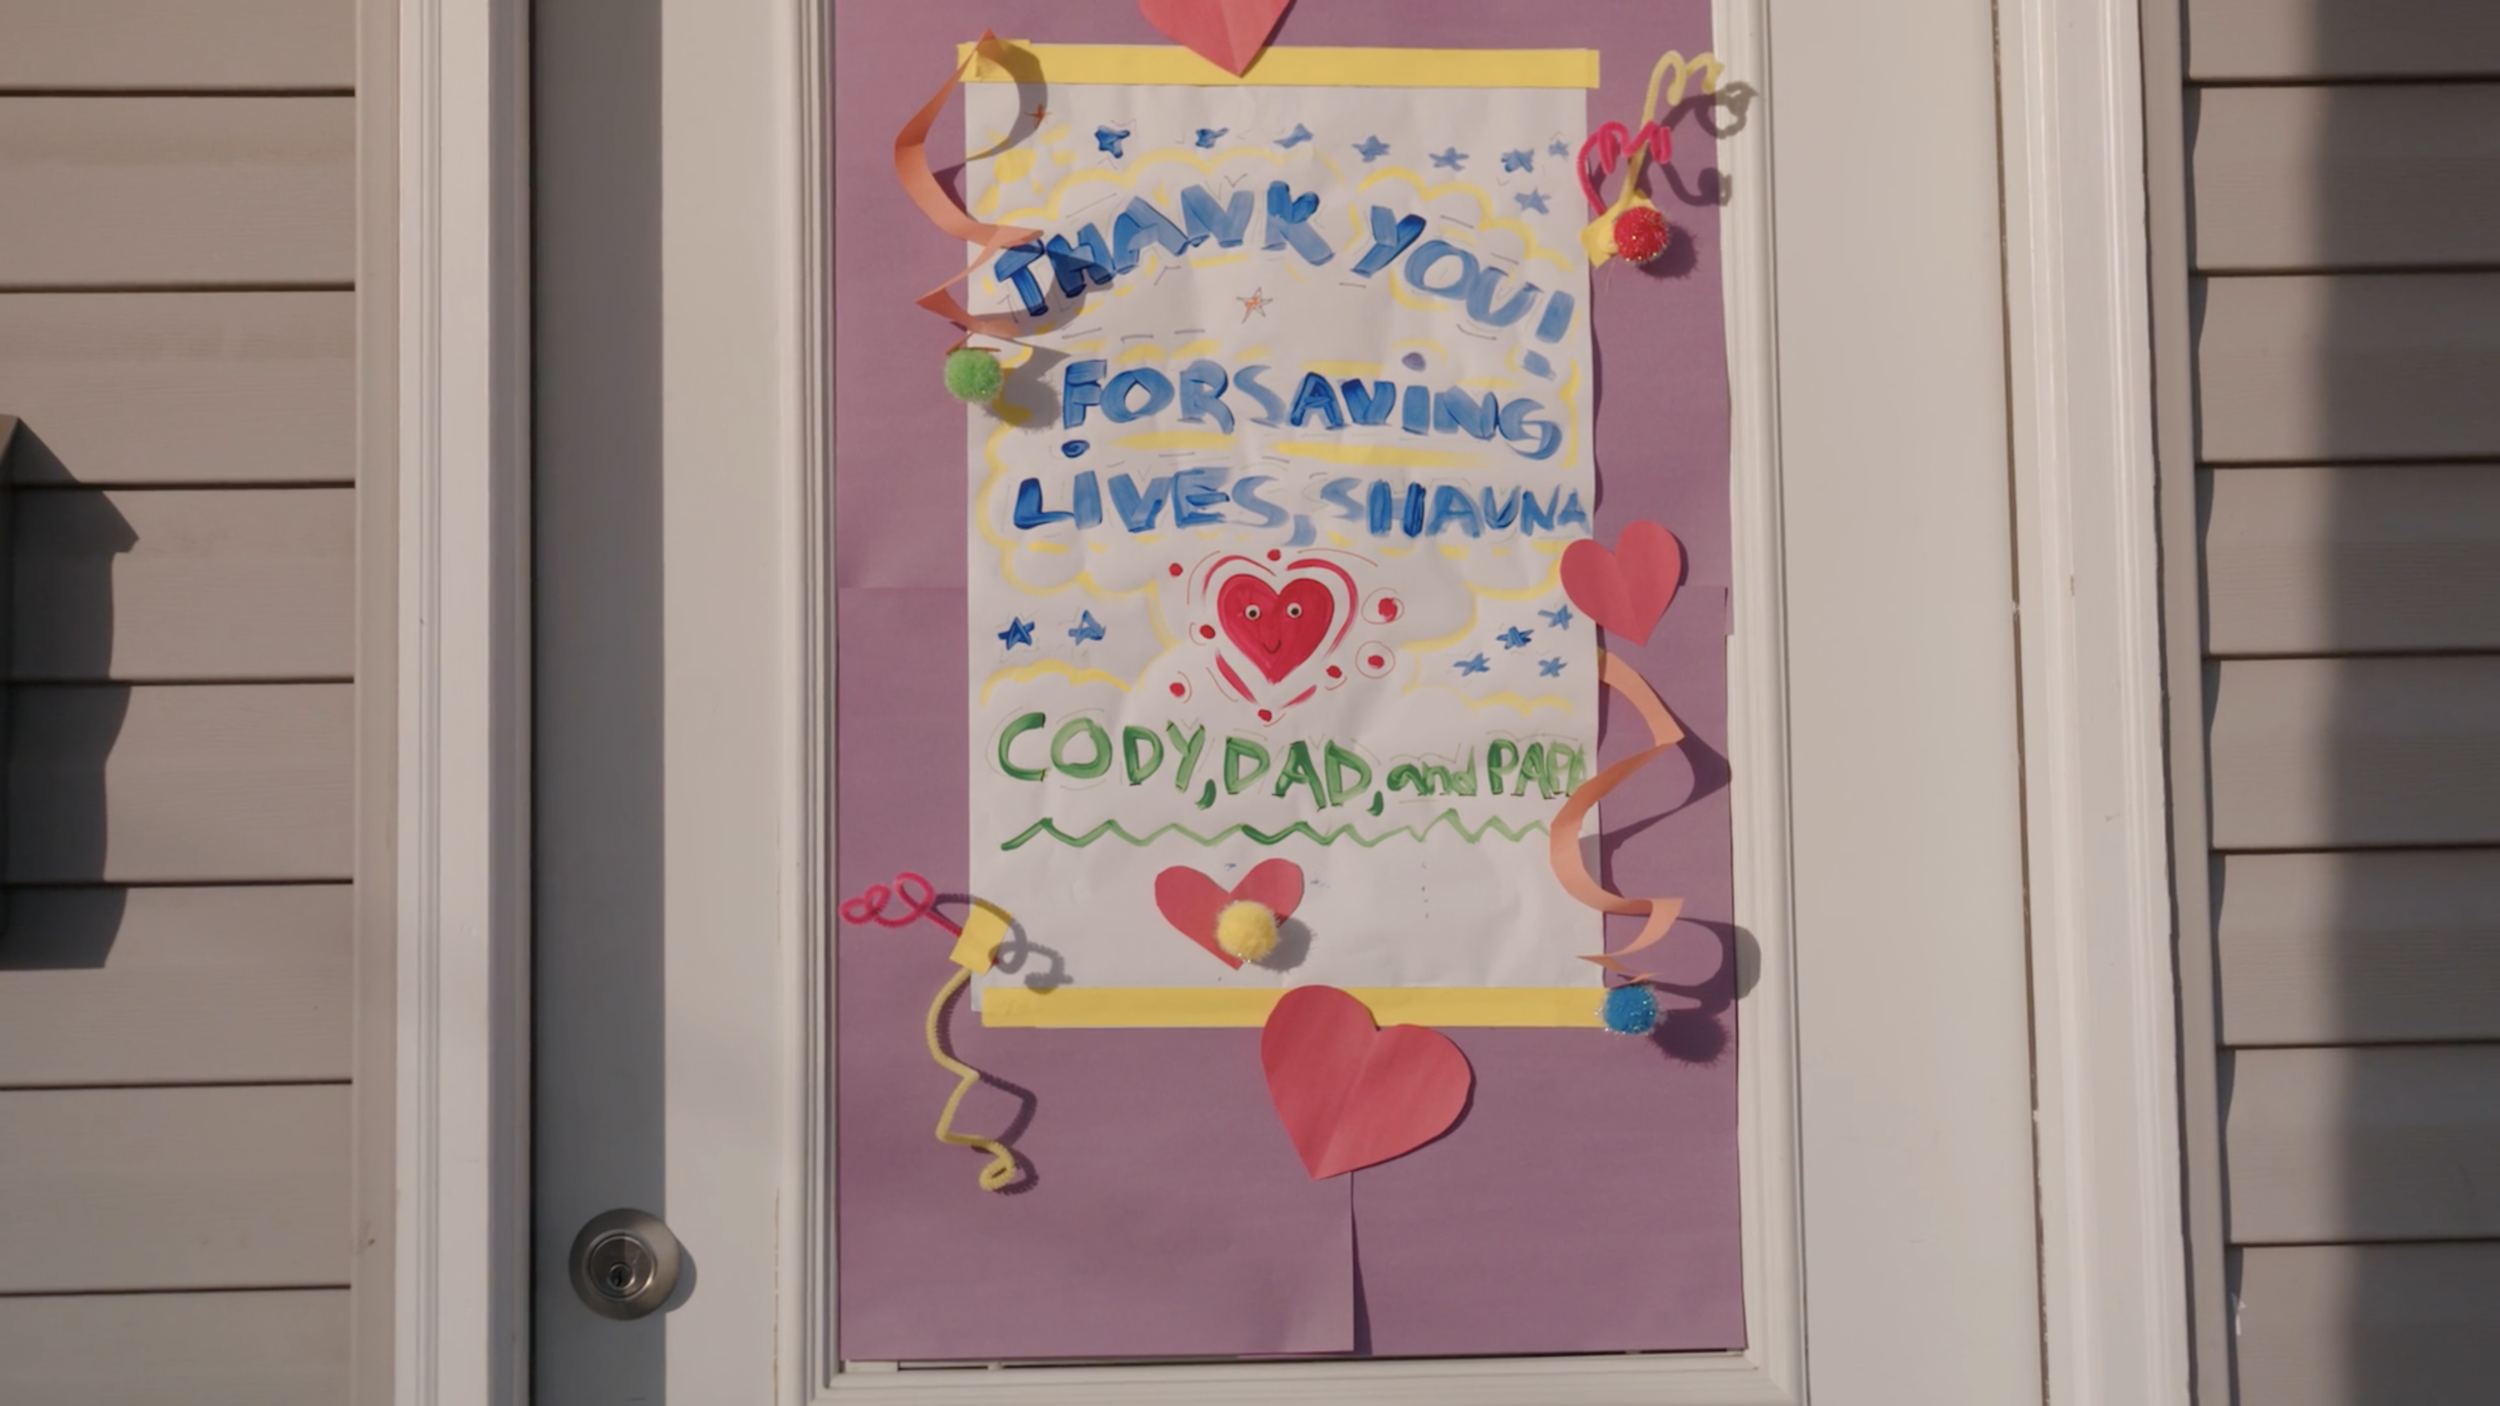 THANK YOU!
FOR SAVING
LIVES, SHAUNA
CODY, DAD, and PAPA